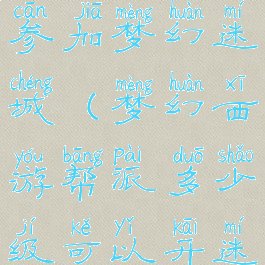 cān jiā mèng huàn mí
参加梦幻迷
chéng mèng huàn xī
城(梦幻西
yóu bāng pài duō shǎo
游帮派多少
jí kě yǐ kāi mí
级可以开迷